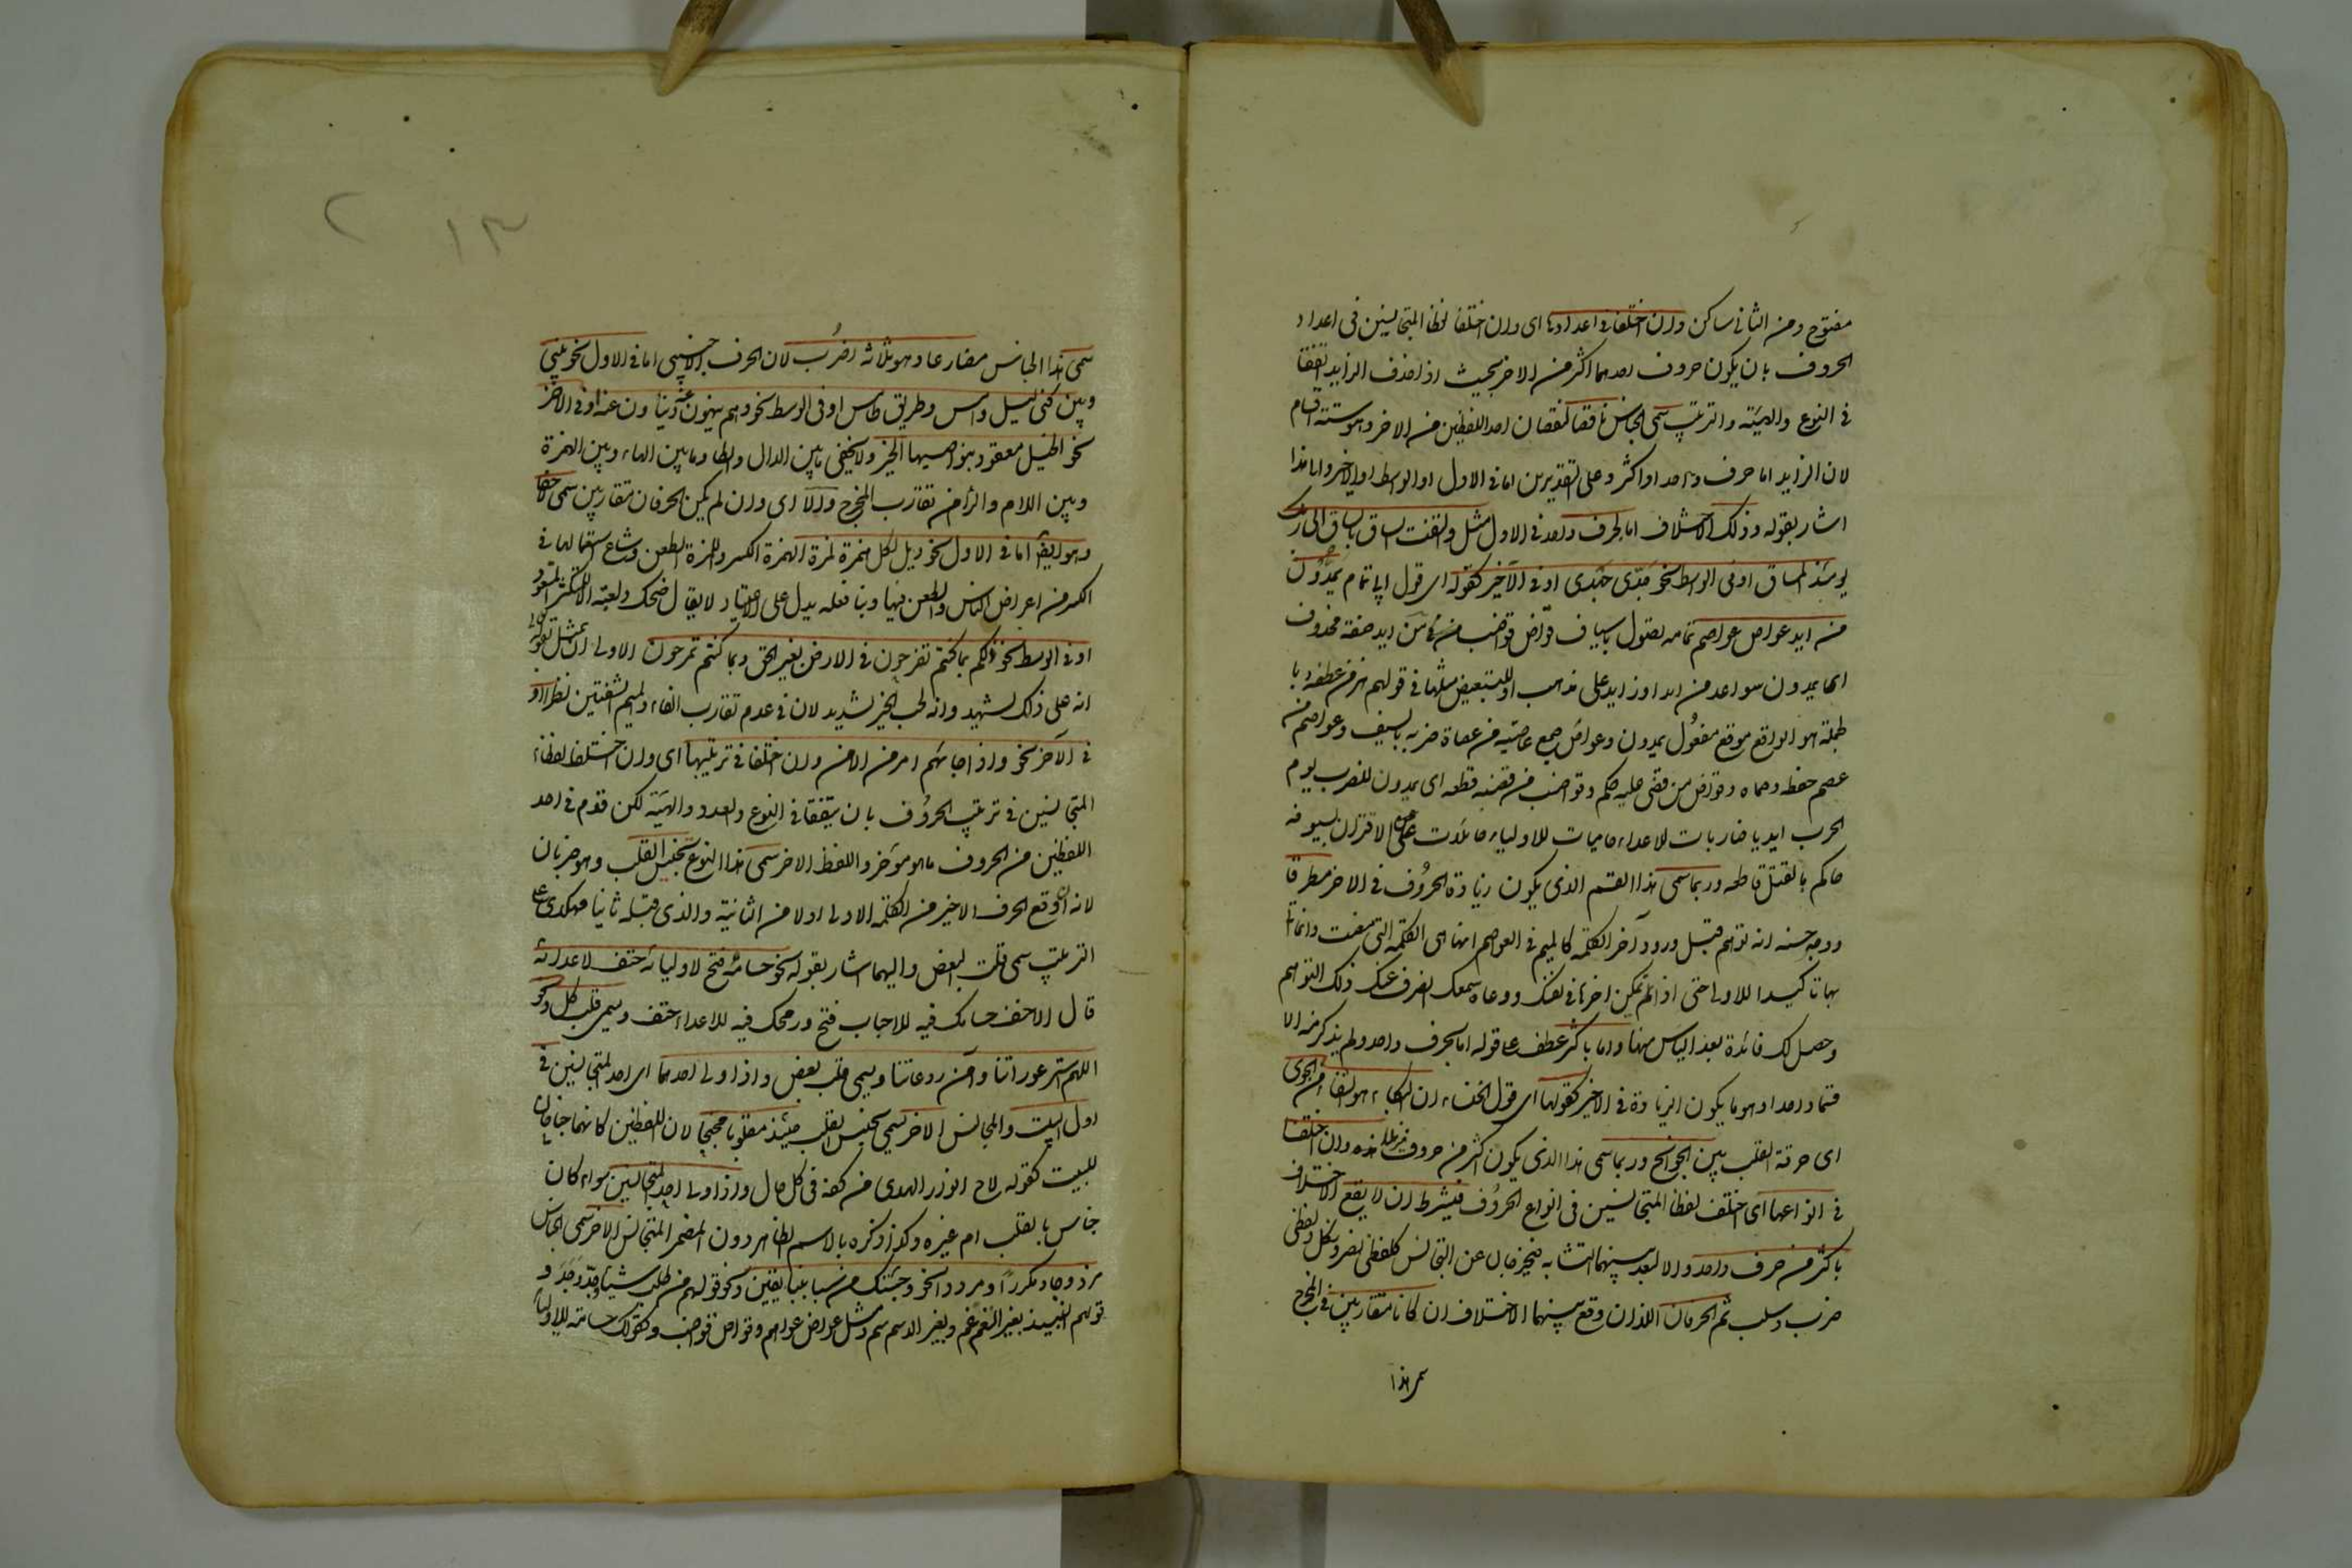 مفتوح ومن الثانى ساكن وان اختلفا فى اعدادها اى وان اختلف لفظا المتجانسين فى اعداد
الحروف بان يكون حروف احدهما اكثر من الاخر بحيث اذا حذف الزايد اتفقا
فى النوع والهيئة والترتيب سمى الجناس ناقصا لنقصان احد اللفظين من الاخر وهو ستة اقسام
لان الزايد اما حرف واحد او اكثر وعلى التقديرين اما فى الاول او الوسط او الاخر والى هذا
اشار بقوله وذلك الاختلاف اما بحرف واحد فى الاول مثل والتفت الساق بالساق الى ربك
يومئذ المساق او فى الوسط نحو جدى جهدى او فى الآخر كقوله اى قول ابى تمام يمدون
من ايد عواص عواصم تمامه تصول باسياف قواض قواضب من فى من ايد صفة محذوف
اى يمدون سواعد من ايد او زايد على مذهب او للتبعيض مثلها فى قولهم هز من عطفه وبا
لجملة هو الواقع موقع مفعول يمدون وعواص جمع عاصية من عصاه ضربه بالسيف وعواصم من
عصم حفظه وحماه وقواض من قضى عليه حكم وقواضب من قضبه قطعه اى يمدون للضرب يوم
الحرب ايديا ضاربات للاعداء حاميات للاولياء صائلات على الاقران بسيوف
حاكم بالقتل قاطعه وربما سمى هذا القسم الذى يكون زيادة الحروف فى الاخر مطرفا
ووجه حسنه انه توهم قبل ورود آخر الكلمة كالميم فى العواصم انها هى الكلمة التى مضت وانما
بها تاكيدا للاولى حتى اذا تمكن اخرها فى نفسك ووعاه سمعك انصرف عنك ذلك التوهم
وحصل لك فائدة بعد الياس منها واما باكثر عطف على قوله اما بحرف واحد ولم يذكر منه الا
قسما واحدا وهو ما يكون الزيادة فى الاخير كقولها اى قول الخنساء ان البكاء هو الشفاء من الجوى
اى حرقة القلب بين الجوانح وربما سمى هذا الذى يكون اكثر من حروف مذيلا وان اختلفا
فى انواعها اى اختلف لفظا المتجانسين فى انواع الحروف فيشترط ان لا يقع الاختلاف
باكثر من حرف واحد والا لبعد بينهما التشابه فيخرجان عن التجانس كلفظى نصر ونكل ولفظى
ضرب وسلب ثم الحرفان اللذان وقع بينهما الاختلاف ان كانا متقاربين فى المخرج
سمى هذا
سمى هذا الجناس مضارعا وهو ثلاثة اضرب لان الحرف الاجنبى اما فى الاول نحو بينى
وبين كنى ليل دامس وطريق طامس او فى الوسط نحو وهم ينهون عنه ويناون عنه او فى الاخر
نحو الخيل معقود بنواصيها الخير ولا يخفى ما بين الدال والطاء وما بين الهاء وبين الهمزة
وبين اللام والراء من تقارب المخرج والا اى وان لم يكن الحرفان متقاربين سمى لاحقا
وهو ايضا اما فى الاول نحو ويل لكل همزة لمزة الهمزة الكسر واللمزة الطعن وشاع استعمالها فى
الكسر من اعراض الناس والطعن فيها وبناء فعله يدل على الاعتياد لا يقال ضحكة ولعنة الا للمكثر المتعود
او فى الوسط نحو ذلكم بما كنتم تفرحون فى الارض بغير الحق وبما كنتم تمرحون الاولى ان يمثل بقوله
انه على ذلك لشهيد وانه لحب الخير لشديد لان فى عدم تقارب الفاء والميم الشفتين نظرا او
فى الآخر نحو واذا جاءهم امر من الامن وان اختلفا فى ترتيبها اى وان اختلف لفظا
المتجانسين فى ترتيب الحروف بان يتفقا فى النوع والعدد والهيئة لكن قدم فى احد
اللفظين من الحروف ما هو موخر واللفظ الاخر سمى هذا النوع تجنيس القلب وهو ضربان
لانه ان وقع الحرف الاخير من الكلمة الاولى اولا من الثانية والذى قبله ثانيا فهكذى على
الترتيب سمى قلب البعض واليهما اشار بقوله نحو حسامه فتح لاوليائه حتف لاعدائه
قال الاحنف حسامك فيه للاحباب فتح ورمحك فيه للاعداء حتف ويسمى قلب كل ونحو
اللهم استر عوراتنا وآمن روعاتنا ويسمى قلب بعض واذا ولى احدهما اى احد المتجانسين فى
اول البيت والمجانس الاخر يسمى تجنيس القلب حينئذ مقلوبا مجنحا لان اللفظين كانهما جناحان
للبيت كقوله لاح انوار الهدى من كفه فى كل حال واذا ولى احد المتجانسين سواء كان
جناس بالقلب ام غيره وكذا ذكره بالاسم الظاهر دون المضمر المتجانس الاخر سمى الجناس
مزدوجا ومكررا ومرددا نحو وجئتك من سبا بنبا يقين ونحو قولهم من طلب شيئا وجد وجد و
قولهم النبيذ بغير النغم غم وبغير الدسم سم ومثل عواص عواصم وقواض قواضب وكقولك حسامه للاوليا